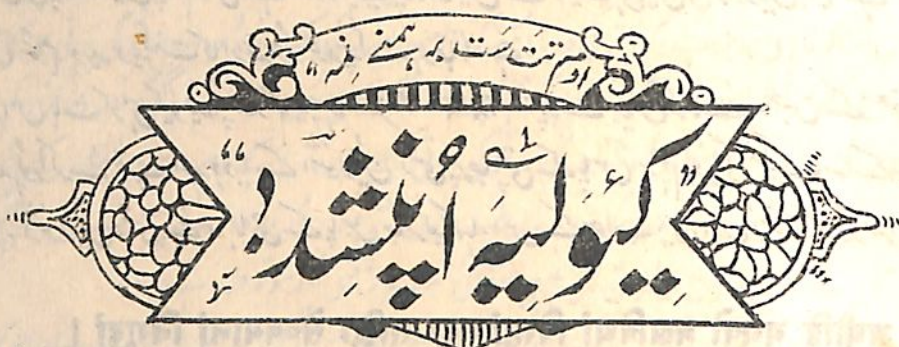 اوم تت ست برہمنے نمہ"
"کیولیہ اُپنشد"